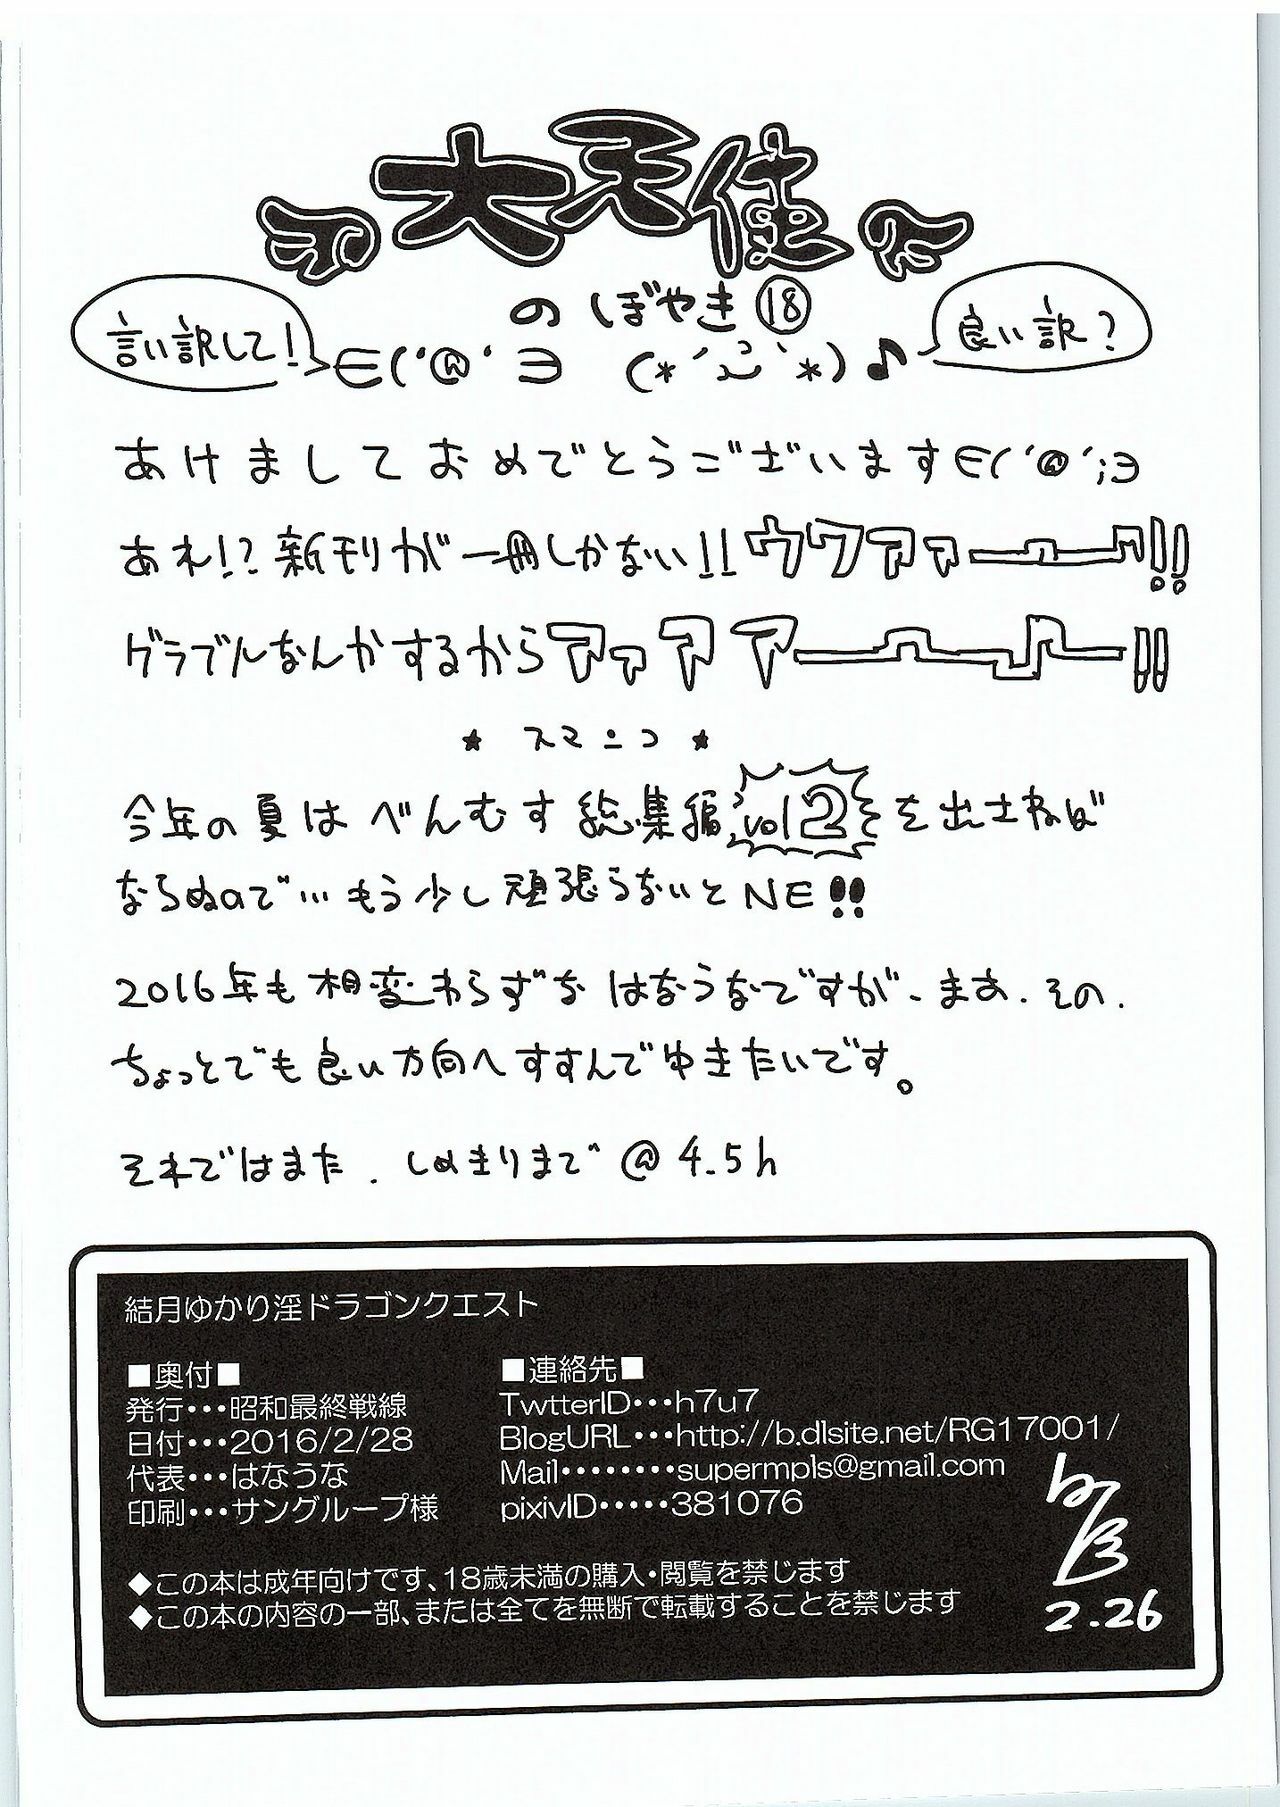 大天使
のぼやき⑱
言い訳して!
∈('@'∋ (*´ω`*)♪
良い訳?
あけましておめでとうございます∈('@';∋
あれ!?新刊が一冊しかない!!ウワァァーーッ!!
グラブルなんかするからアァアアーーー!!
★ スマンコ ★
今年の夏はべんむす総集編vol2を出さねば
ならぬので…もう少し頑張らないとNE!!
2016年も相変わらずなはなうなですが、まあ、その、
ちょっとでも良い方向へすすんでゆきたいです。
それではまた. しめきりまで@4.5h
結月ゆかり淫ドラゴンクエスト
■奥付■
発行・・・昭和最終戦線
日付・・・2016/2/28
代表・・・はなうな
印刷・・・サングループ様
■連絡先■
TwtterID・・・h7u7
BlogURL・・・http://b.dlsite.net/RG17001/
Mail・・・・・・・・supermpls@gmail.com
pixivID・・・・・381076
◆この本は成年向けです、18歳未満の購入・閲覧を禁じます
◆この本の内容の一部、または全てを無断で転載することを禁じます
2.26